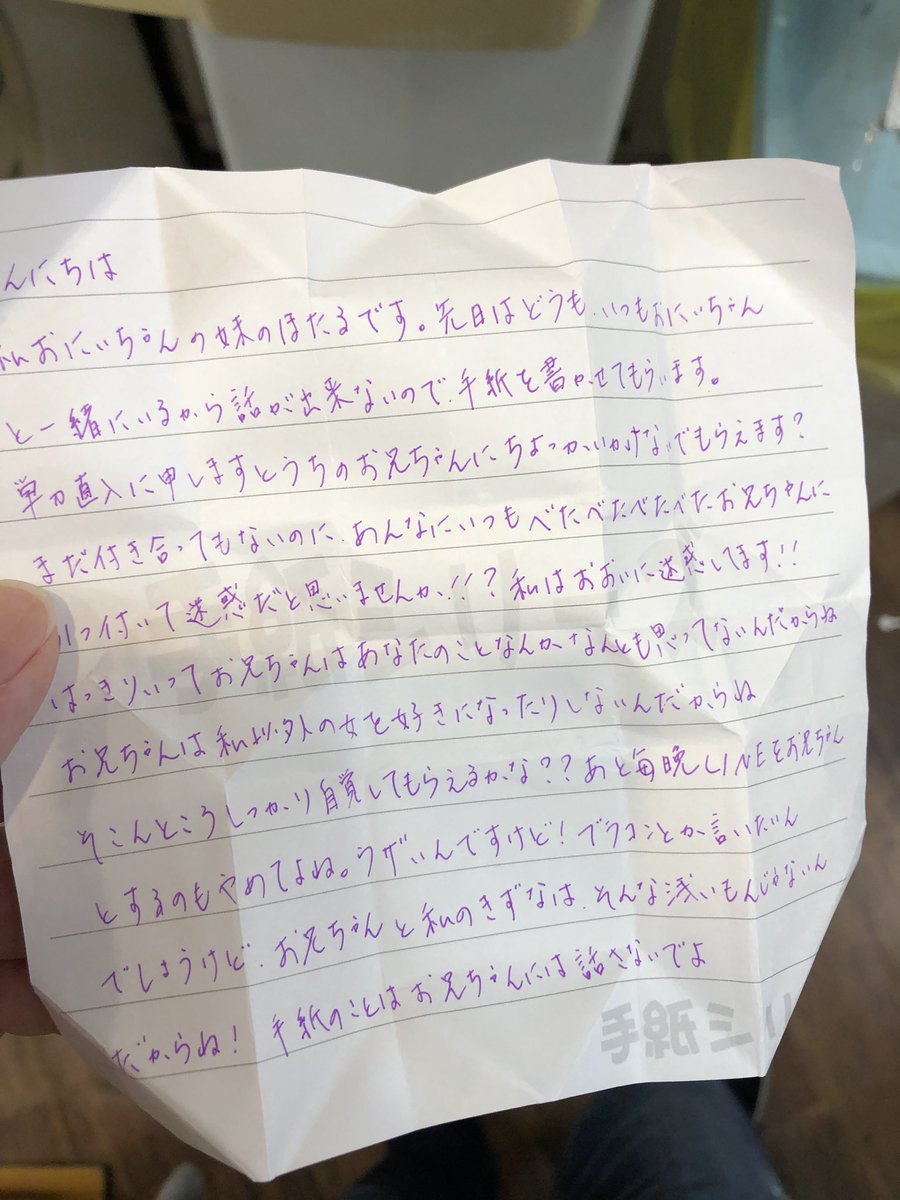 んにちは
私おにいちゃんの妹のほたるです。先日はどうも、いつもおにいちゃん
と一緒にいるから話が出来ないので、手紙を書かせてもらいます。
単刀直入に申しますとうちのお兄ちゃんにちょっかいかけないでもらえます?
まだ付き合ってもないのに、あんなにいつもべたべたべたべたお兄ちゃんに
っ付いて迷惑だと思いませんか!!?私はおおいに迷惑してます!!
はっきりいってお兄ちゃんはあなたのことなんかなんとも思ってないんだからね
お兄ちゃんは私以外の女を好きになったりしないんだからね
そこんところしっかり自覚してもらえるかな??あと毎晩LINEをお兄ちゃん
とするのもやめてよね。うざいんですけど!ブラコンとか言いたいん
でしょうけど、お兄ちゃんと私のきずなは、そんな浅いもんじゃないん
だからね!手紙のことはお兄ちゃんには話さないでよ
手紙ミ